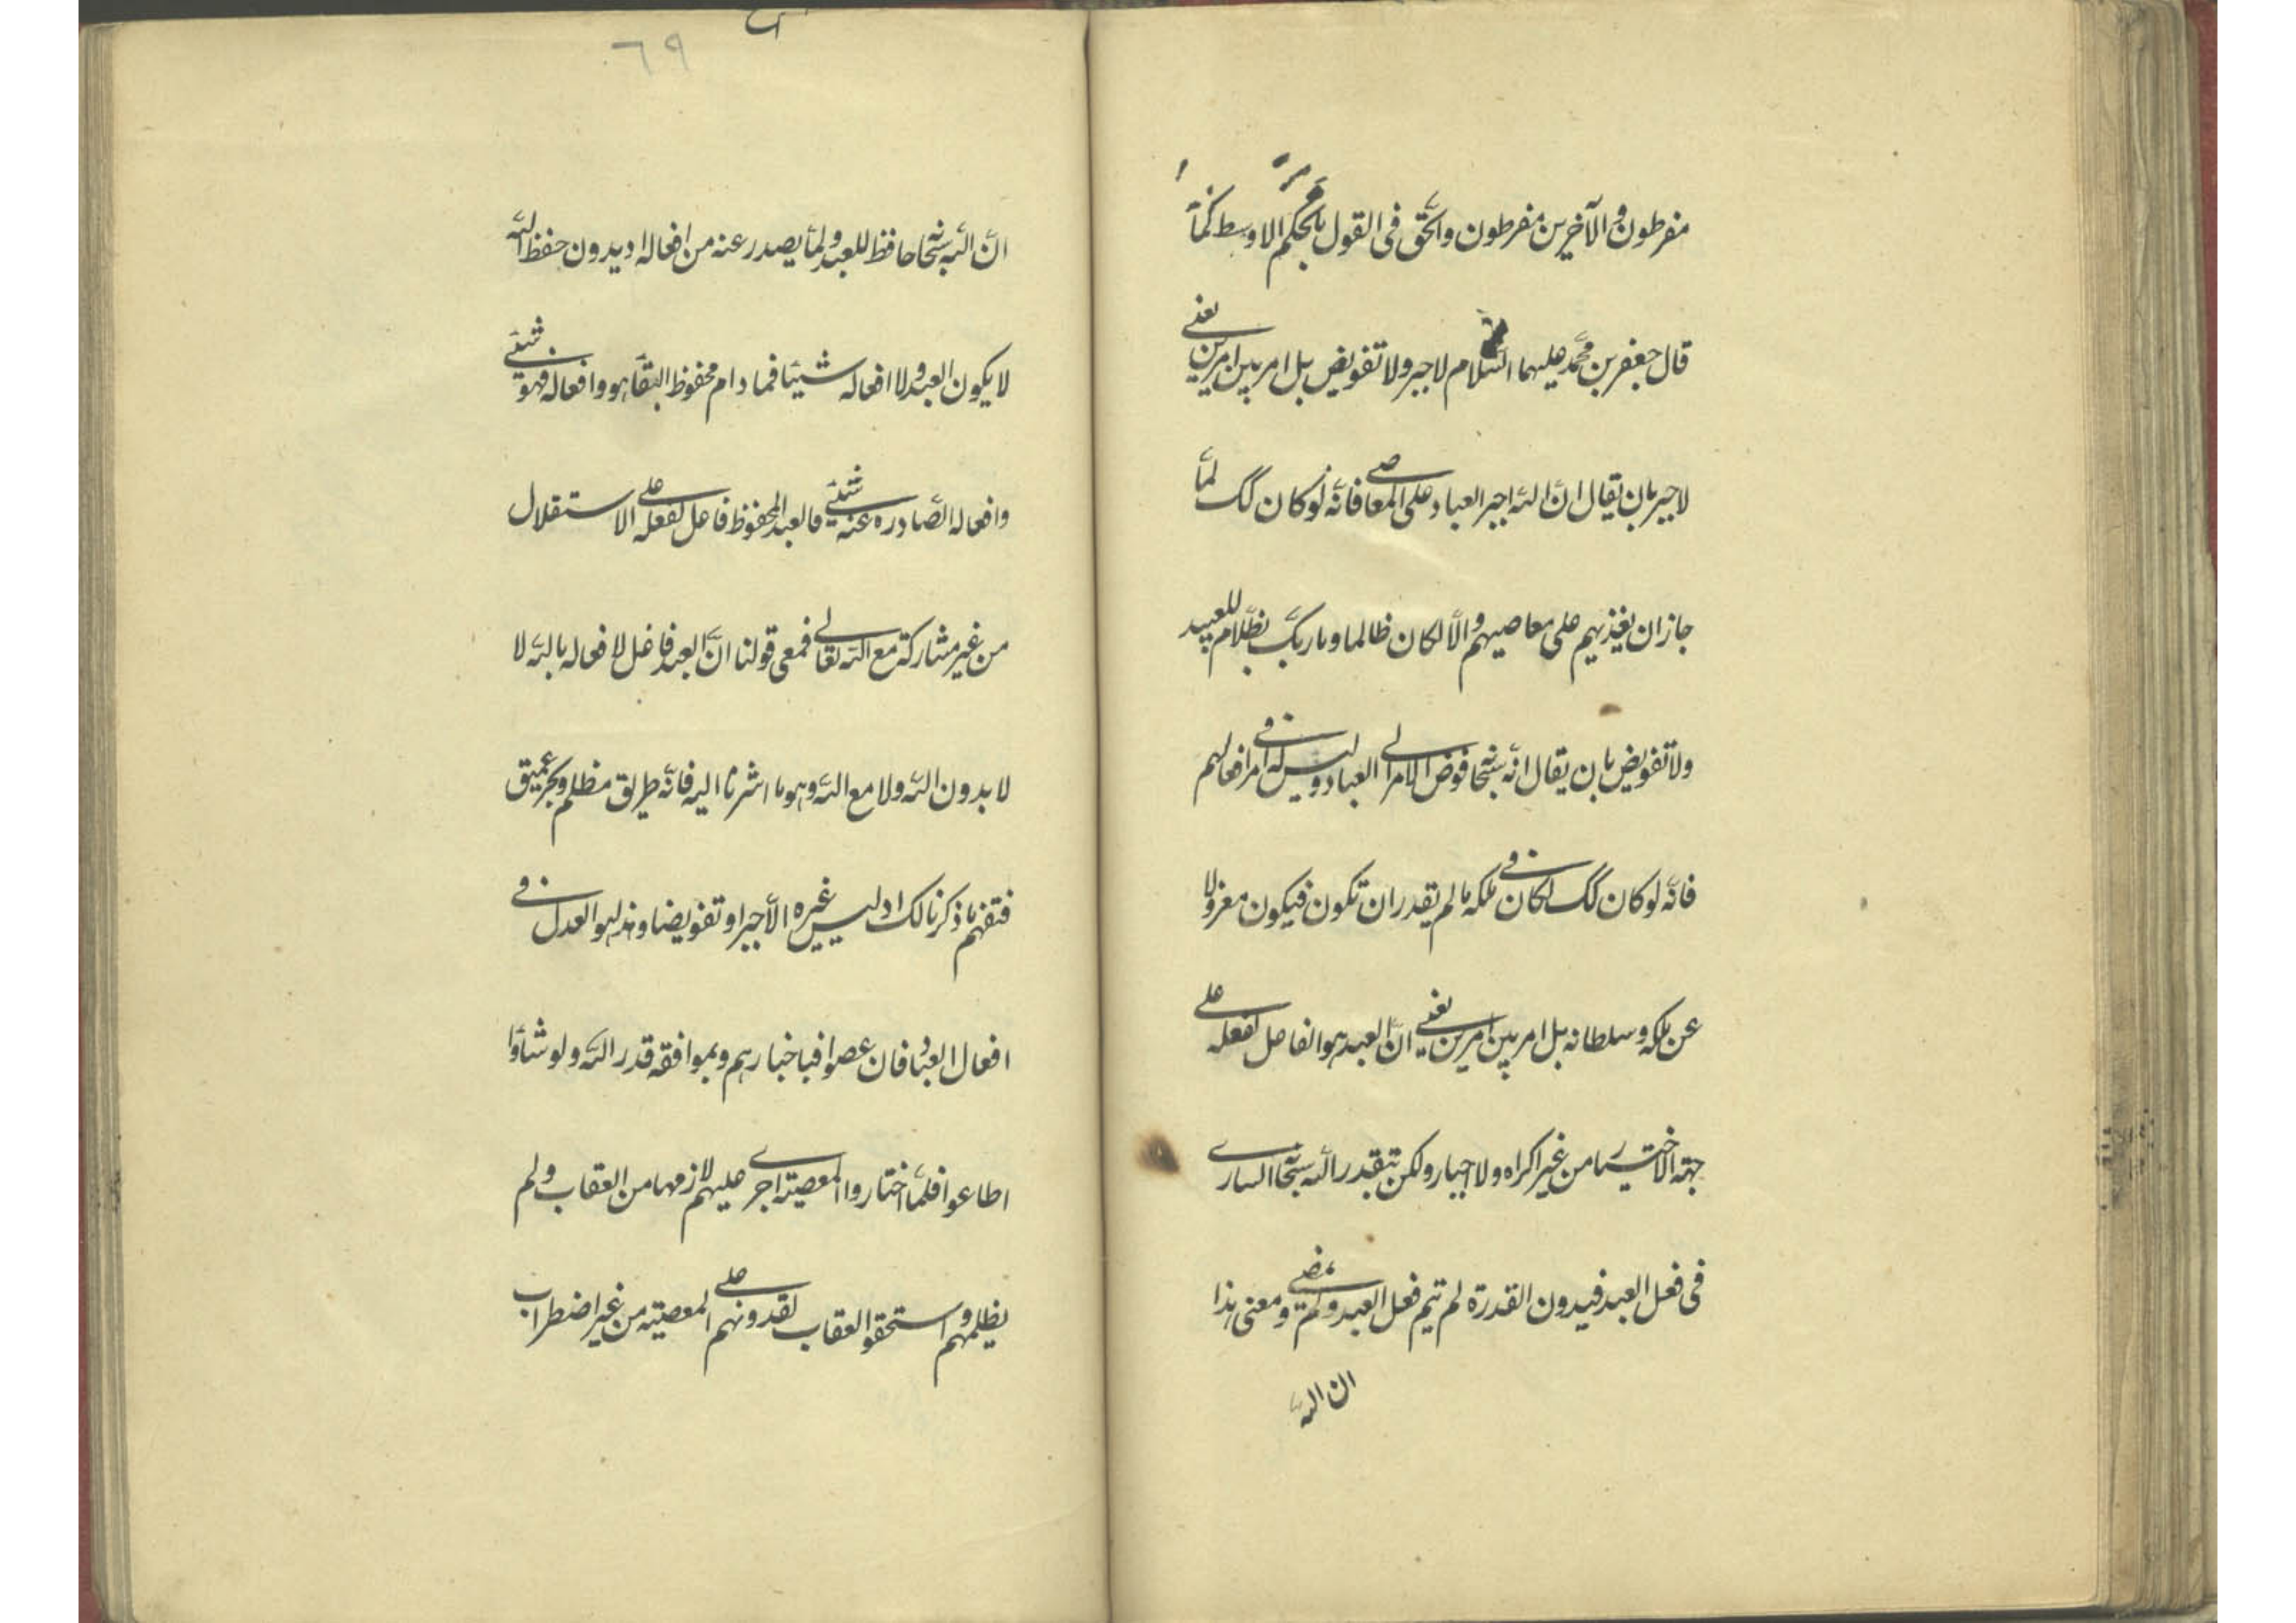 مفرطون والآخرين مفرطون والحق فى القول بالحكم الاوسط كما
قال جعفر بن محمد عليهما السلام لا جبر ولا تفويض بل امر بين امرين يعنى
لا جبر بان يقال ان الله اجبر العباد على المعاصى فانه لو كان كك لما
جاز ان يعذبهم على معاصيهم والا لكان ظالما وما ربك بظلام للعبيد
ولا تفويض بان يقال انه سبحانه فوض الامر الى العباد وليس له فى امر افعالهم
فانه لو كان كك لكان فى ملكه ما لم يقدر ان تكون فيكون معزولا
عن ملكه وسلطانه بل امر بين امرين يعنى ان العبد هو الفاعل لفعله على
جهة الاختيار من غير اكراه ولا اجبار ولكن بقدر الله سبحانه السارى
فى فعل العبد فبدون القدرة لم يتم فعل العبد ولم يمض ومعنى هذا
ان الله
٦٩
ان الله سبحانه حافظ للعبد ولما يصدر عنه من افعاله اذ بدون حفظ الله
لا يكون العبد ولا افعاله شيئا فما دام محفوظ البقاء هو وافعاله فهو شيئ
وافعاله الصادره عنه شيئ فالعبد المحفوظ فاعل لفعله على الاستقلال
من غير مشاركة مع الله تعالى فمعنى قولنا ان العبد فاعل لافعاله بالله لا
لا بدون الله ولا مع الله وهو ما اشرنا اليه فانه طريق مظلم وبحر عميق
فتفهم ما ذكرنا لك اذ ليس غيره الا جبرا وتفويضا وهذا هو العدل فى
افعال العباد فان عصوا فباختيارهم وبموافقة قدر الله ولو شاؤا
اطاعوا فلما اختاروا المعصية اجرى عليهم لازمها من العقاب ولم
يظلمهم واستحقوا العقاب لقدرتهم على المعصية من غير اضطراب